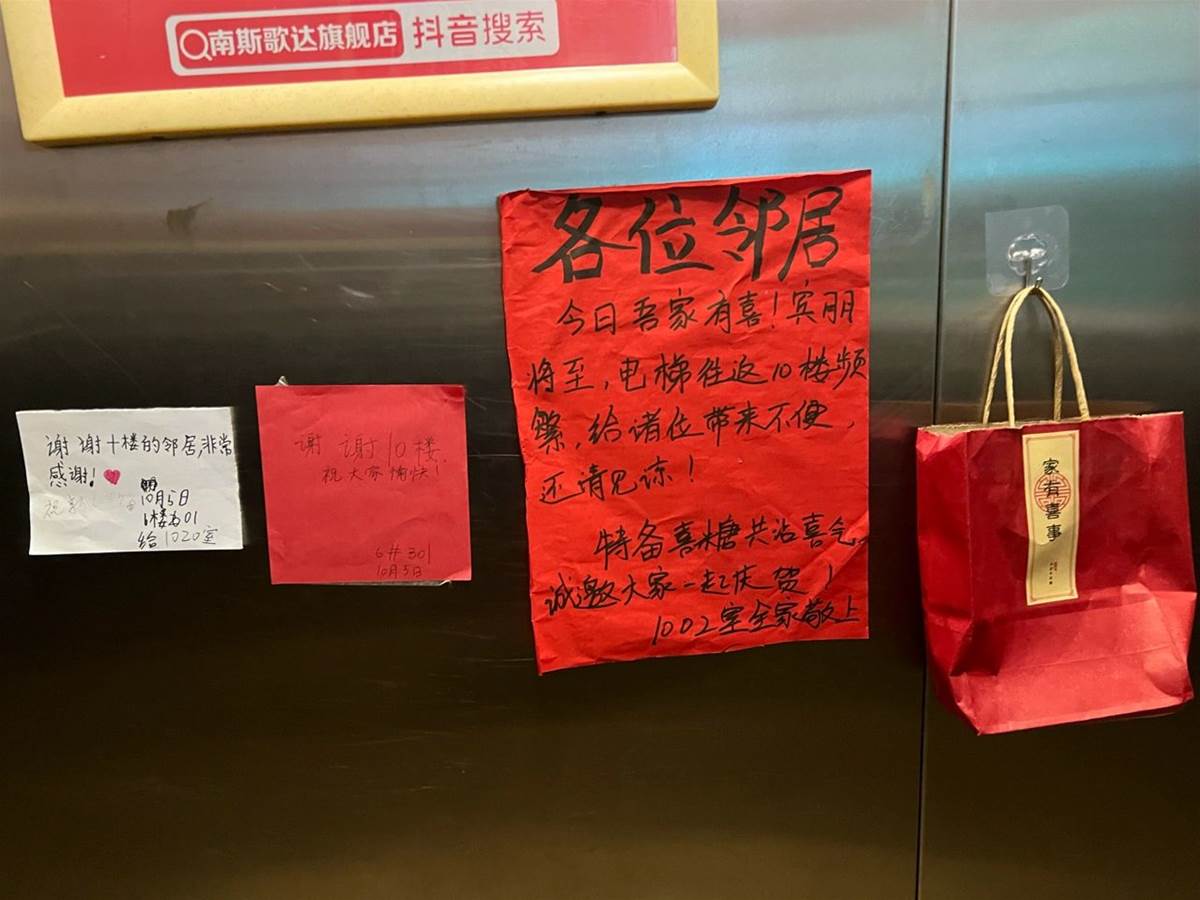 南斯歌达旗舰店 抖音搜索
各位邻居
今日吾家有喜!宾朋
将至,电梯往返10楼频
繁,给诸位带来不便,
还请见谅!
特备喜糖共沾喜气,
诚邀大家一起庆贺!
1002室全家敬上
谢谢10楼!
祝大家愉快!
6#301
10月5日
谢谢十楼的邻居,非常
感谢!
10月5日
给1020室
家有喜事